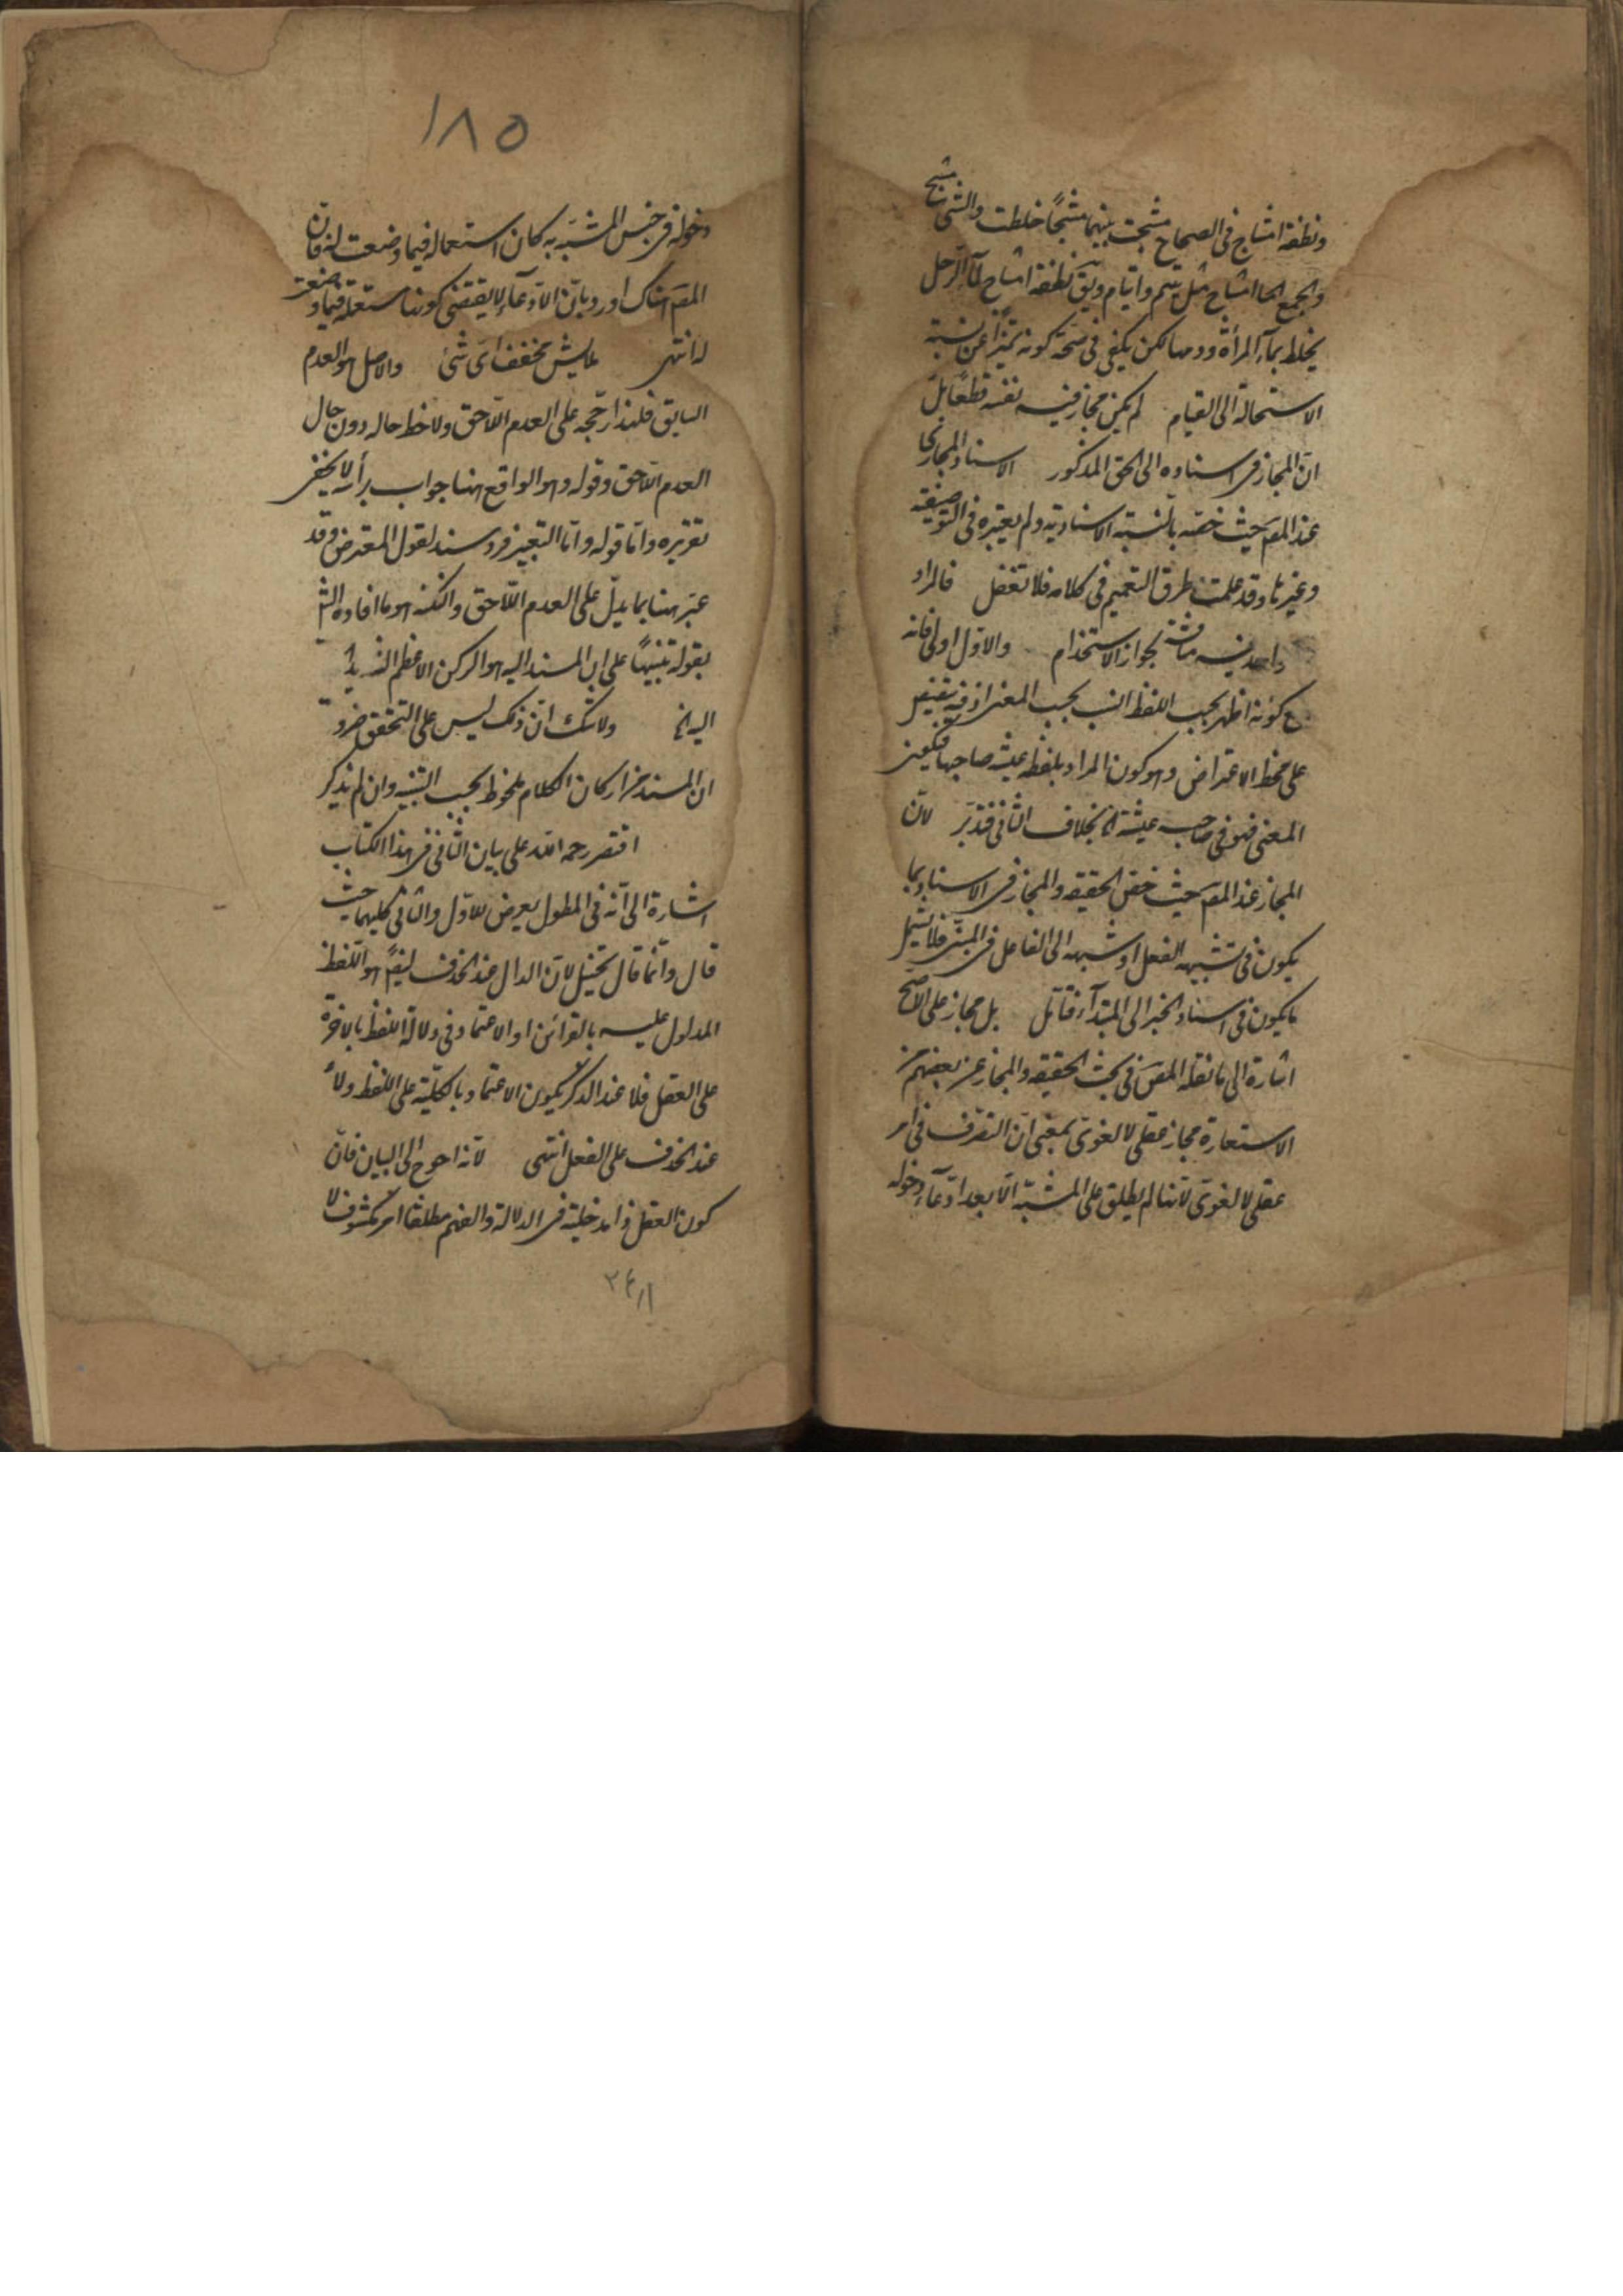 ونطفة امشاج فى الصحاح مشجت بينهما مشجًا خلطت والشئ مشيج
والجمع امشاج مثل يتيم وايتام ويق نطفة امشاج لمآء الرجل
يختلط بمآء المرأة ودمها لكن يكفى فى صحة كونه تميزا عن نسبة
الاستحالة الى القيام لم يكن مجاز فيه نفسه قطعًا بل
انّ المجاز فى اسناده الى الحق المذكور الاسناد المجازى
عند المصَ حيث خصّه بالنسبة الاسنادية ولم يعتبره فى التوصيفية
وغيرها وقد علمت طرق التعميم فى كلامه فلا تغفل فالمراد
واحد فيه مناقشة لجواز الاستخدام والاول اولى فانه
مع كونه اظهر بحسب اللفظ انسب بحسب المعنى اذ فيه تنصيص
على محط الاعتراض وهو كون المراد بلفظ عيشة صاحبها فيكون
المعنى فهو فى صاحب عيشة الخ بخلاف الثانى فتدبّر لانّ
المجاز عند المصَ حيث خصّ الحقيقة والمجاز فى الاسناد بما
يكون فى تشبيه الفعل او شبهه الى الفاعل فى المبنىّ فلا تشمل
ما يكون فى اسناد الخبر الى المبتدآء فتامّل بل مجاز على الاصحّ
اشارة الى ما نقله المصَ فى بحث الحقيقة والمجاز عن بعضهم من
الاستعارة مجاز عقلى لا لغوىّ بمعنى انّ التصرّف فى امر
عقلى لا لغوىّ لانّها لم يطلق على المشبّه الّا بعد ادّعآء دخوله
١٨٥
دخوله فى جنس المشبّه به كان استعماله فيما وضعت له فانّ
المصَ هناك اورد بانّ الادّعآء لا يقتضى كونها مستعملة فيما وضعت
له انتهى عايش مخفف اىّ شئ والاصل هو العدم
السابق فلهذا رجّحه على العدم اللّاحق ولاحظ حاله دون حال
العدم اللّاحق وقوله وهو الواقع ههنا جواب برأسه لا يخفى
تقريره وامّا قوله وامّا التعبير فرد سند لقول المعترض وقد
عبّر ههنا بما يدلّ على العدم اللّاحق والنكتة هو ما افاده الشَ
بقوله تنبيهًا على ان المسند اليه هو الركن الاعظم الشديد
اليه الخ ولا شك انّ ذلك ليس على التحقق ضرورة
ان المسند من اركان الكلام ملحوظ بحسب النسبة وان لم يذكر
اقتصر رحمه الله على بيان الثانى فى هذا الكتاب
اشارة الى انّه فى المطول يعرض للاوّل والثانى كليهما حيث
قال وانّما قال تخييل لانّ الدال عند الحذف ايضًا هو اللّفظ
المدلول عليه بالقرائن او الاعتماد فى دلالة اللفظ بالاخرة
على العقل فلا عند الذكر يكون الاعتماد بالكلّية على اللفظ ولا
عند الحذف على الفعل انتهى لانّه احوج الى البيان فانّ
كون العقل ذا مدخلية فى الدلالة والفهم مطلقا امر مكشوف لا